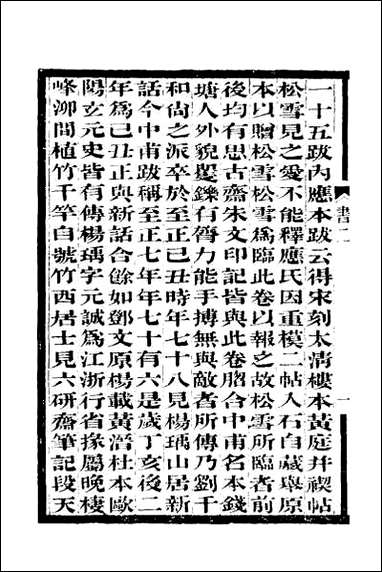 一十五跋內應本跋云得宋刻太清樓本黃庭幷禊帖
松雪見之愛不能釋應氏因重模二帖入石自藏舉原
本以贈松雪松雪爲臨此卷以報之故松雪所臨者前
後均有思古齋朱文印記皆與此卷脗合中甫名本錢
塘人外貌矍鑠有膂力能手搏無與敵者所傳乃劉千
和尙之派卒於至正己丑時年七十八見楊瑀山居新
話今中甫跋稱至正七年年七十有六是歲丁亥後二
年爲己丑正與新話合餘如鄧文原楊載黃溍杜本歐
陽玄元史皆有傳楊瑀字元誠爲江浙行省掾屬晚棲
峰泖間植竹千竿自號竹西居士見六硏齋筆記段天
書二
一